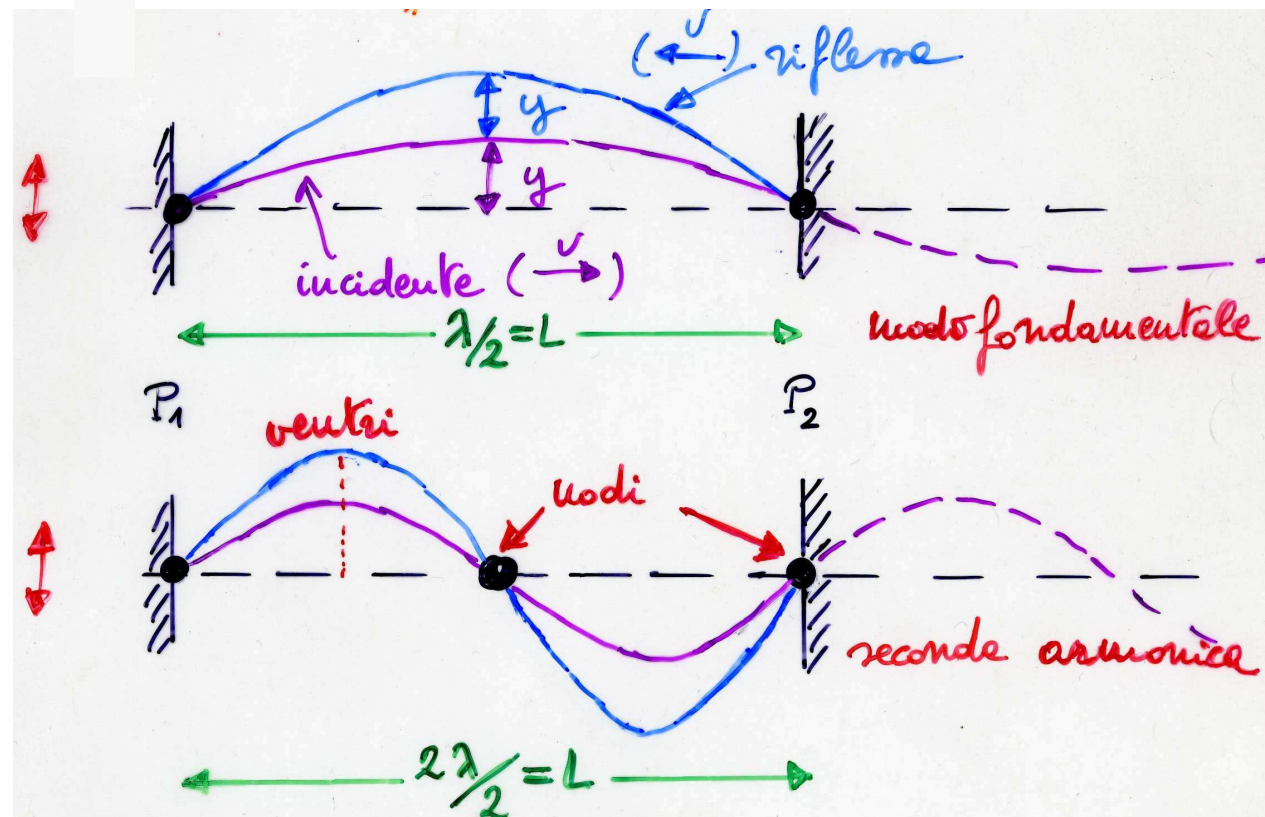 (←) v riflessa
y
y
incidente (→) v
λ/2 = L
modo fondamentale
P₁
P₂
ventri
nodi
seconda armonica
2λ/2 = L